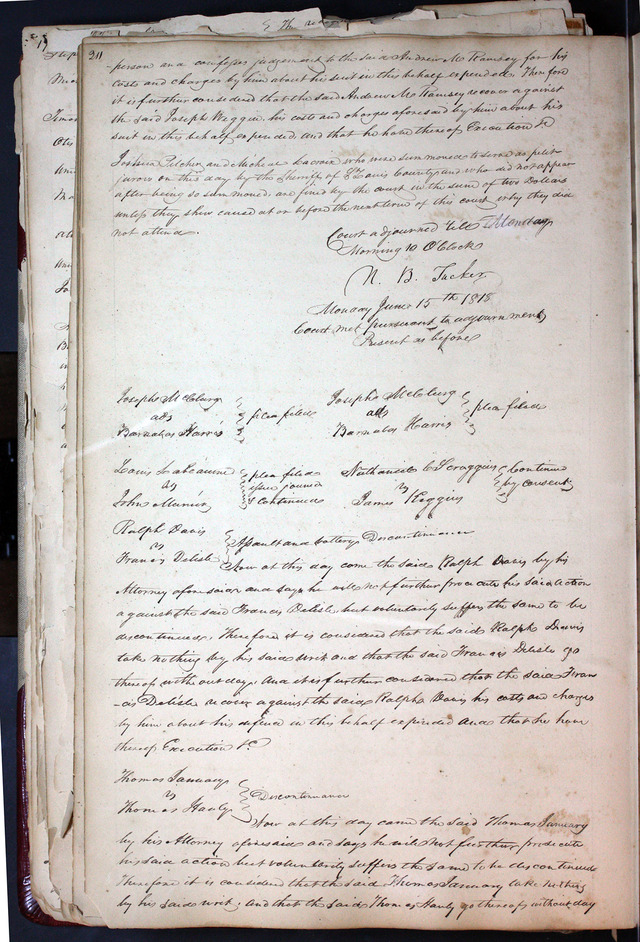 211
person and confesses judgement to the said Andrew M Ramsey for his
costs and charges by him about his suit in this behalf expended. Therefore
it is further considered that the said Andrew M Ramsey recover against
the said Joseph Wiggin, his costs and charges aforesaid by him about his
suit in this behalf expended, and that he have thereof Execution &c
Joshua Pilcher and Michael Lacroix who were summoned to serve as petit
jurors on this day by the Sheriff of St Louis County and who did not appear
after being so summoned, are fined by the court in the sum of two Dollars
unless they shew cause at or before the next term of this court why they did
not attend.
Court adjourned till Monday
Morning 10 OClock
N. B. Tucker
Monday June 15th 1818
Court met pursuant to adjournment
Present as before
Joseph McClurg
ads
Barnabas Harris
plea filed
Joseph McClurg
ads
Barnabas Harris
plea filed
Louis Labeaume
vs
John
plea filed
issue joined
& continued
Nathaniel Scruggins
vs
James
Continued
by consent
Ralph Davis
vs
Francis Delisle
Assault and battery Discontinuance
Now at this day come the said Ralph Davis by his
Attorney aforesaid and says he will not further prosecute his said action
against the said Francis Delisle but voluntarily suffers the same to be
discontinued. Therefore it is considered that the said Ralph Davis
take nothing by his said writ and that the said Francis Delisle go
thereof without day, And it is further considered that the said Fran
-cis Delisle recover against the said Ralph Davis his costs and charges
by him about his defence in this behalf expended and that he have
thereof Execution &c
Thomas January
vs
Thomas Hanly
Discontinuance
Now at this day came the said Thomas January
by his Attorney aforesaid and says he will not further prosecute
his said action but voluntarily suffers the same to be discontinued
Therefore it is considered that the said Thomas January take nothing
by his said writ, and that the said Thomas Hanly go thereof without day